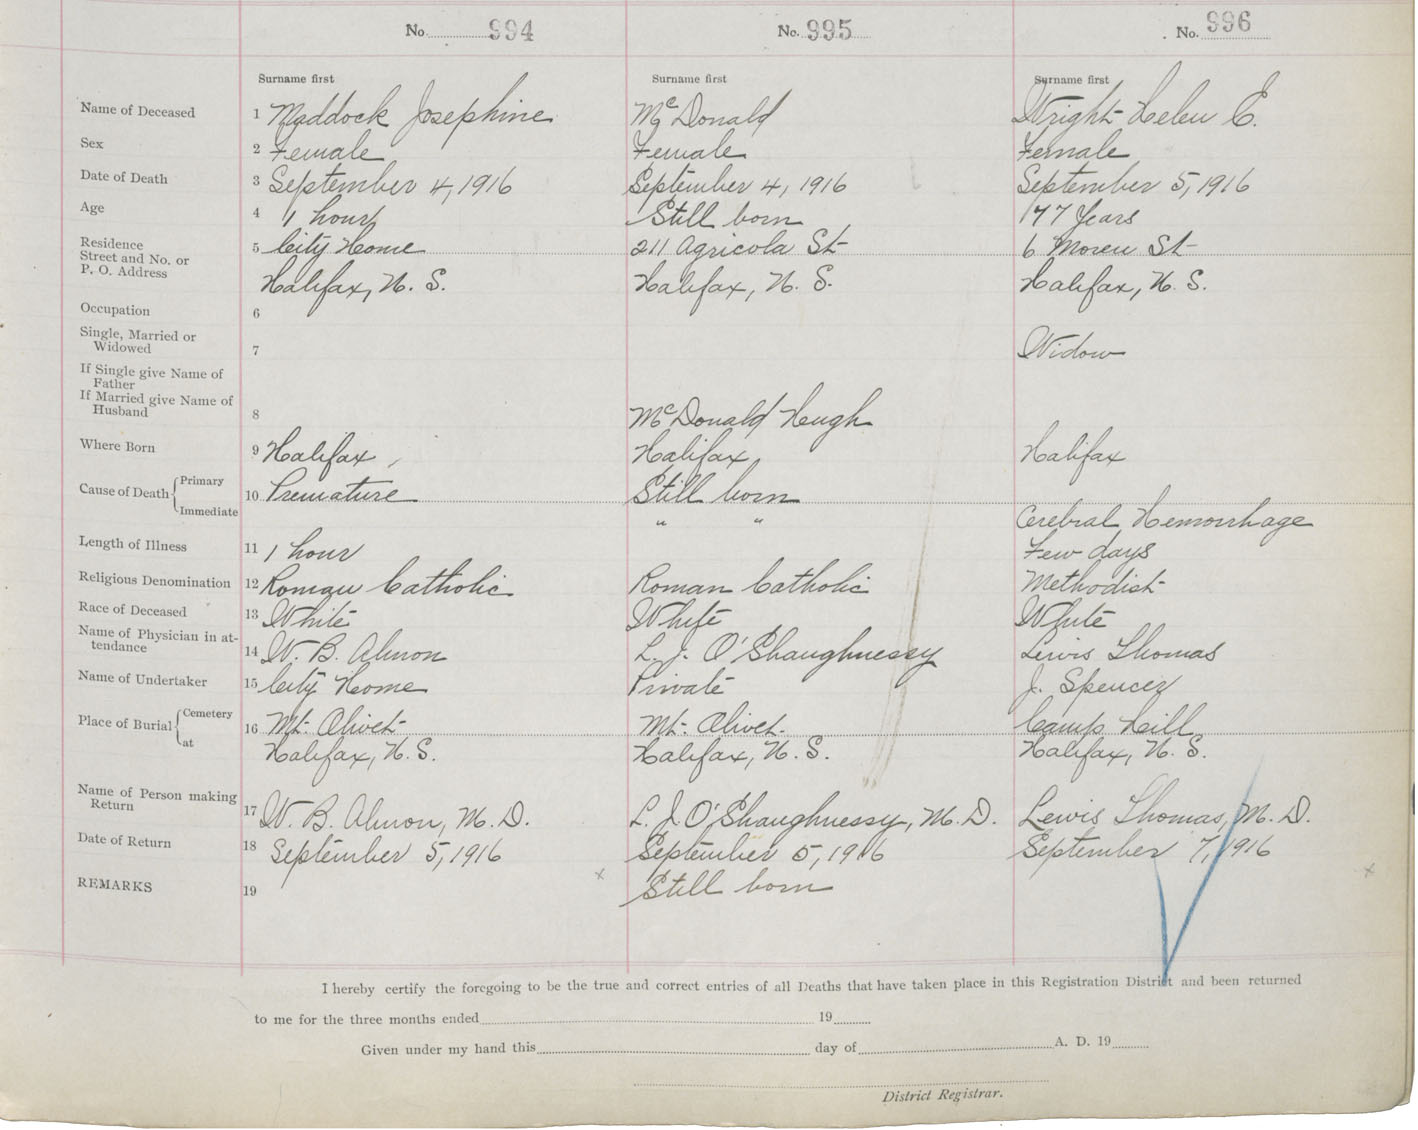 No. 994 No. 995 No. 996
Surname first Surname first Surname first
Name of Deceased 1 Maddock Josephine McDonald Wright Helen E.
Sex 2 Female Female Female
Date of Death 3 September 4, 1916 September 4, 1916 September 5, 1916
Age 4 1 hour Still born 77 Years
Residence
Street and No. or 5 City Home 211 Agricola St 6 St
P. O. Address Halifax, N. S. Halifax, N. S. Halifax, N. S.
Occupation 6
Single, Married or
Widowed 7 Widow
If Single give Name of
Father
If Married give Name of
Husband 8 McDonald Hugh
Where Born 9 Halifax Halifax Halifax
Cause of Death Primary
10 Premature Still born
Immediate " " Cerebral Hemorrhage
Length of Illness 11 1 hour Few days
Religious Denomination 12 Roman Catholic Roman Catholic Methodist
Race of Deceased 13 White White White
Name of Physician in at-
tendance 14 W. B. Almon L. J. O'Shaughnessy Lewis Thomas
Name of Undertaker 15 City Home Private J. Spencer
Place of Burial Cemetery 16 Mt. Olivet Mt. Olivet. Camp Hill
at Halifax, N. S. Halifax, N. S. Halifax, N. S.
Name of Person making
Return 17 W. B. Almon, M. D. L. J. O'Shaughnessy, M. D. Lewis Thomas, M. D.
Date of Return 18 September 5, 1916 September 5, 1916 September 7, 1916
REMARKS 19 x Still born x
I hereby certify the foregoing to be the true and correct entries of all Deaths that have taken place in this Registration District and been returned
to me for the three months ended 19
Given under my hand this day of A. D. 19
District Registrar.